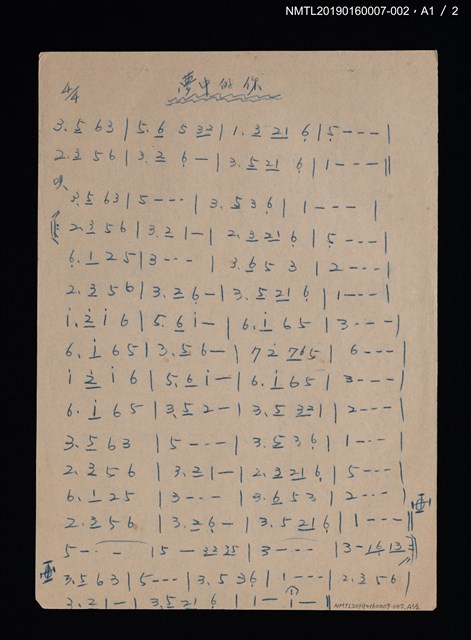 NMTL20190160007-002，A1 / 2
夢中的你
4/4
3. 5 6 3 | 5. 6 5 3 2 | 1. 2 2 1 6 | 5 - - - |
2. 3 5 6 | 3. 2 6 - | 3. 5 2 1 6 | 1 - - - ||
唱
3. 5 6 3 | 5 - - - | 3. 5 3 6 | 1 - - - |
2. 3 5 6 | 3. 2 1 - | 2. 3 2 1 6 | 5 - - - |
6. 1 2 5 | 3 - - - | 3. 6 5 3 | 2 - - - |
2. 3 5 6 | 3. 2 6 - | 3. 5 2 1 6 | 1 - - - |
i. 2 i 6 | 5. 6 i - | 6. i 6 5 | 3 - - - |
6. i 6 5 | 3. 5 6 - | 7 2 7 6 5 | 6 - - - |
i 2 i 6 | 5. 6 i - | 6. i 6 5 | 3 - - - |
6. i 6 5 | 3. 5 2 - | 3. 5 3 2 | 2 - - - |
3. 5 6 3 | 5 - - - | 3. 5 3 6 | 1 - - - |
2. 3 5 6 | 3. 2 1 - | 2. 3 2 1 6 | 5 - - - |
6. 1 2 5 | 3 - - - | 3. 6 5 3 | 2 - - - |
2. 3 5 6 | 3. 2 6 - | 3. 5 2 1 6 | 1 - - - ||
5 - - - | 5 - 3 2 3 5 | 3 - - - | 3 - 1 6 1 3
3. 5 6 3 | 5 - - - | 3. 5 3 6 | 1 - - - | 2. 3 5 6 |
3. 2 1 - | 3. 5 2 1 6 | 1 - 1 - ||
NMTL20190160007-002, A1/2